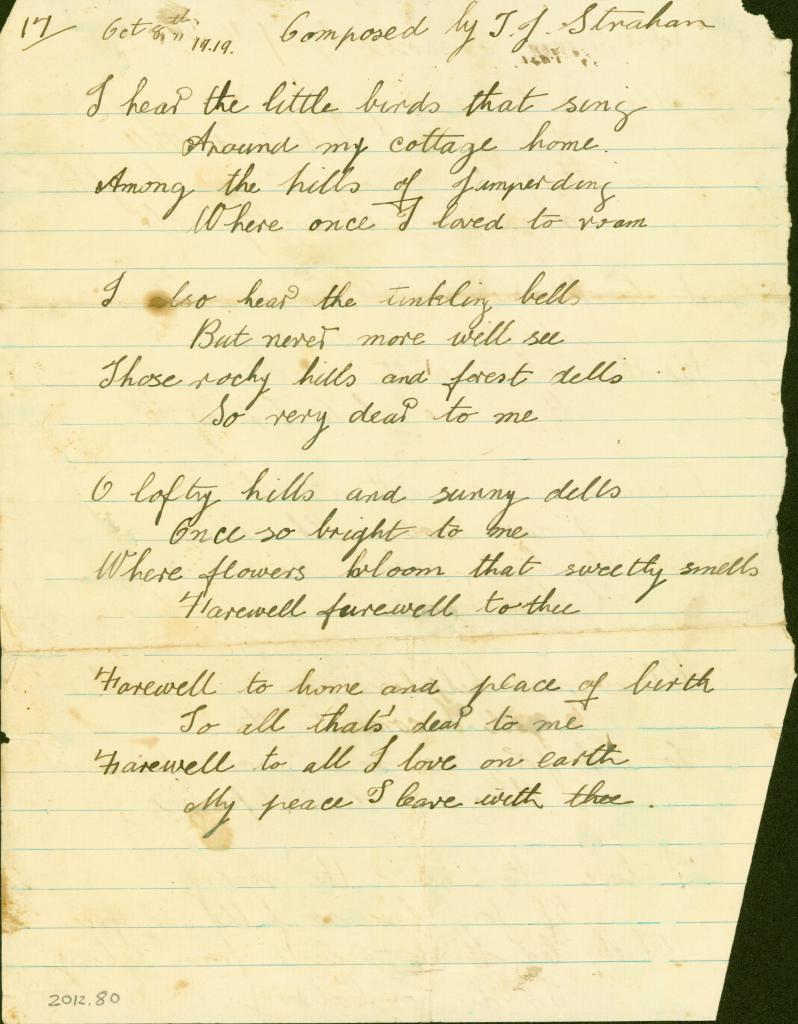 17/ Oct 8th 1919. Composed by T. J. Strahan
I hear the little birds that sing
Around my cottage home.
Among the hills of Jumperding
Where once I loved to roam
I also hear the tinkling bells
But never more will see
Those rocky hills and forest dells
So very dear to me
O lofty hills and sunny dells
Once so bright to me
Where flowers bloom that sweetly smells
Farewell farewell to thee
Farewell to home and place of birth
To all that's dear to me
Farewell to all I love on earth
My peace I leave with thee.
2012.80